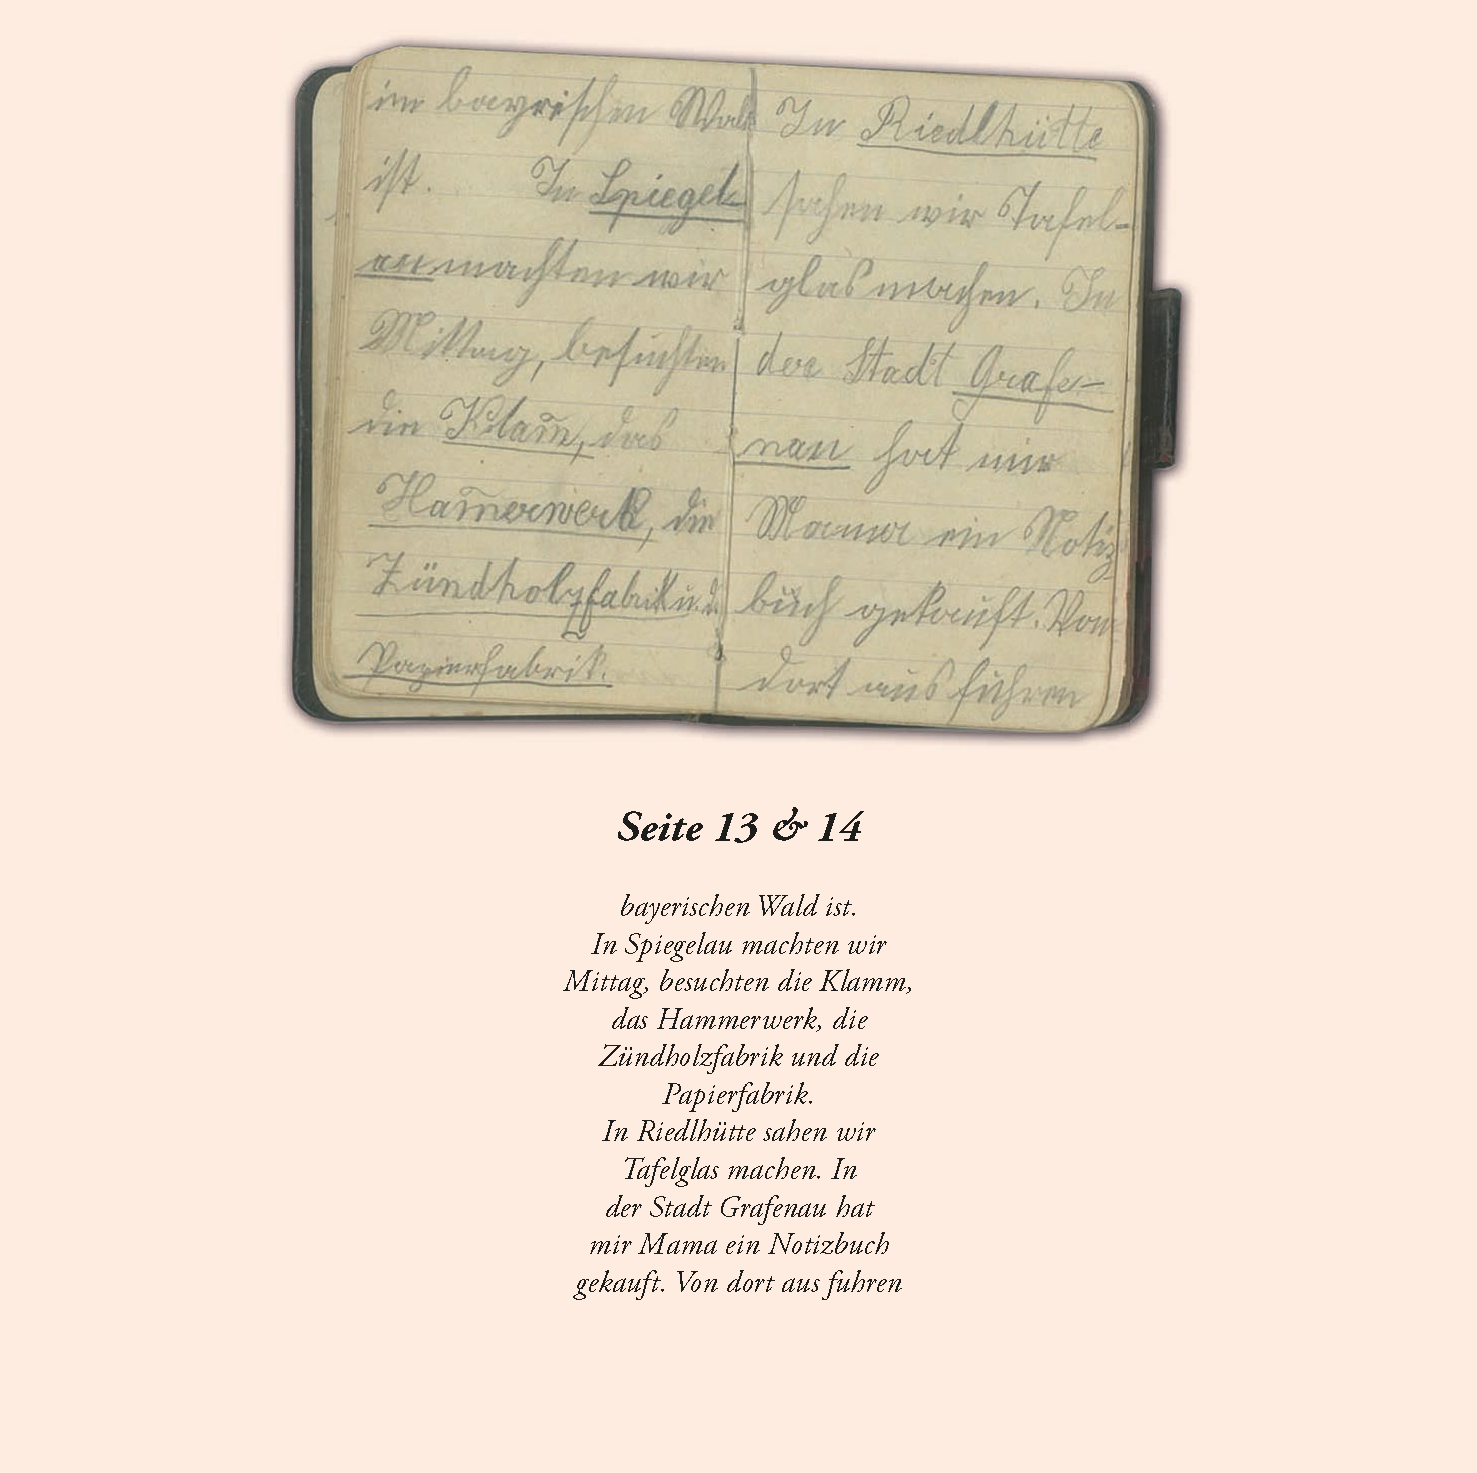 im bayrischen Wald
ist. In Spiegel-
au machten wir
Mittag, besuchten
die Klam̅, das
Ham̅erwerk, die
Zündholzfabrik u. d.
Papierfabrik.
In Riedlhütte
sahen wir Tafel-
glas machen. In
der Stadt Grafe-
nau hat mir
Mama ein Notiz
buch gekauft. Von
dort aus fuhren
Seite 13 & 14
bayerischen Wald ist.
In Spiegelau machten wir
Mittag, besuchten die Klamm,
das Hammerwerk, die
Zündholzfabrik und die
Papierfabrik.
In Riedlhütte sahen wir
Tafelglas machen. In
der Stadt Grafenau hat
mir Mama ein Notizbuch
gekauft. Von dort aus fuhren